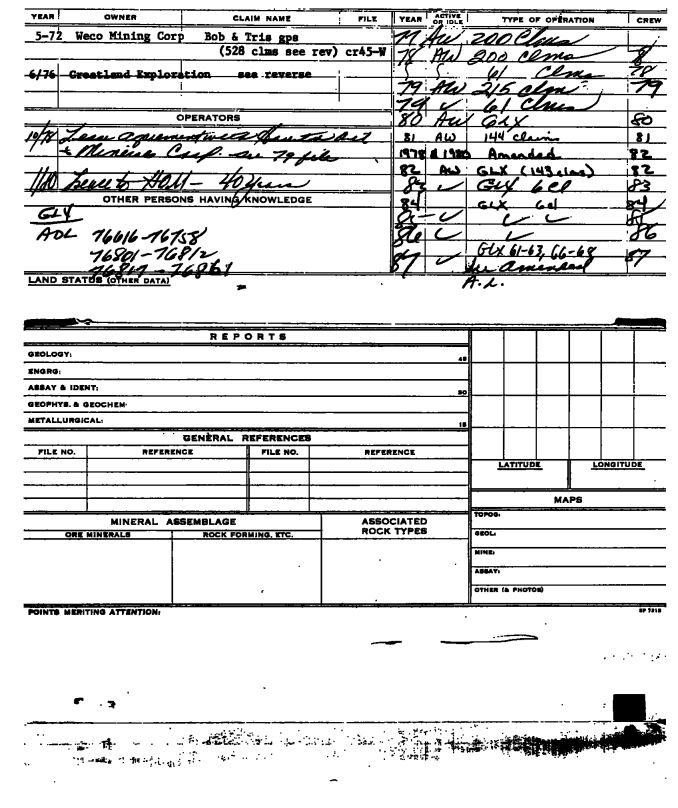 YEAR OWNER CLAIM NAME FILE YEAR ACTIVE OR IDLE TYPE OF OPERATION CREW
5-72 Weco Mining Corp Bob & Tris gps 77 AW 200 Clms
(528 clms see rev) cr45-W 78 AW 200 clms
61 Clms 78
6/76 Greatland Exploration see reverse 79 AW 215 clms 79
79 ✓ 61 Clms
OPERATORS 80 AW GLX 80
10/78 Lease agreement with 81 AW 144 claims 81
& Mineral Corp. see 79 file 1978 & 1980 Amended 82
82 AW GLX (143 clms) 82
11/80 Lease to HAM - 40 years 82 ✓ GLX 6cl 83
OTHER PERSONS HAVING KNOWLEDGE 84 GLX 6cl 84
GLX 85 ✓ ✓ ✓ 85
ADL 76616-76758 86 ✓ ✓ 86
76801-76812 87 ✓ GLX 61-63, 66-68 87
76817-76861 See amended
LAND STATUS (OTHER DATA) A.L.
REPORTS
GEOLOGY: 45
ENGRG:
ASSAY & IDENT: 30
GEOPHYS. & GEOCHEM:
METALLURGICAL: 15
GENERAL REFERENCES
FILE NO. REFERENCE FILE NO. REFERENCE
LATITUDE LONGITUDE
MAPS
MINERAL ASSEMBLAGE ASSOCIATED ROCK TYPES TOPOG:
ORE MINERALS ROCK FORMING, ETC. GEOL:
MINE:
ASSAY:
OTHER (& PHOTOS)
POINTS MERITING ATTENTION: SP 7215